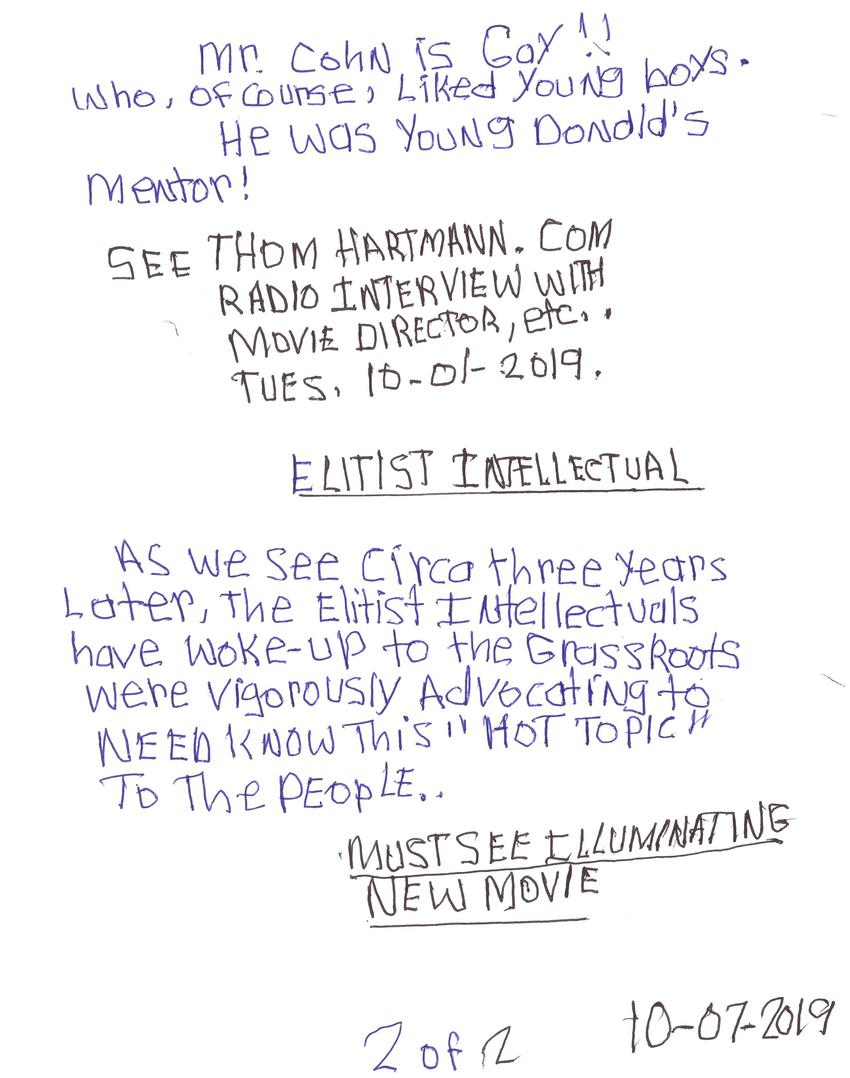 Mr. Cohn is Gay!!
Who, of course, Liked Young boys.
He was Young Donald's
Mentor!
SEE THOM HARTMANN. COM
RADIO INTERVIEW WITH
MOVIE DIRECTOR, etc..
TUES. 10-01-2019.
ELITIST INTELLECTUAL
AS we see Circa three years
Later, The Elitist Intellectuals
have woke-up to the GrassRoots
were vigorously Advocating to
NEED KNOW This "HOT TOPIC"
To The PEOpLE..
MUST SEE ILLUMINATING
NEW MOVIE
2 of 2
10-07-2019